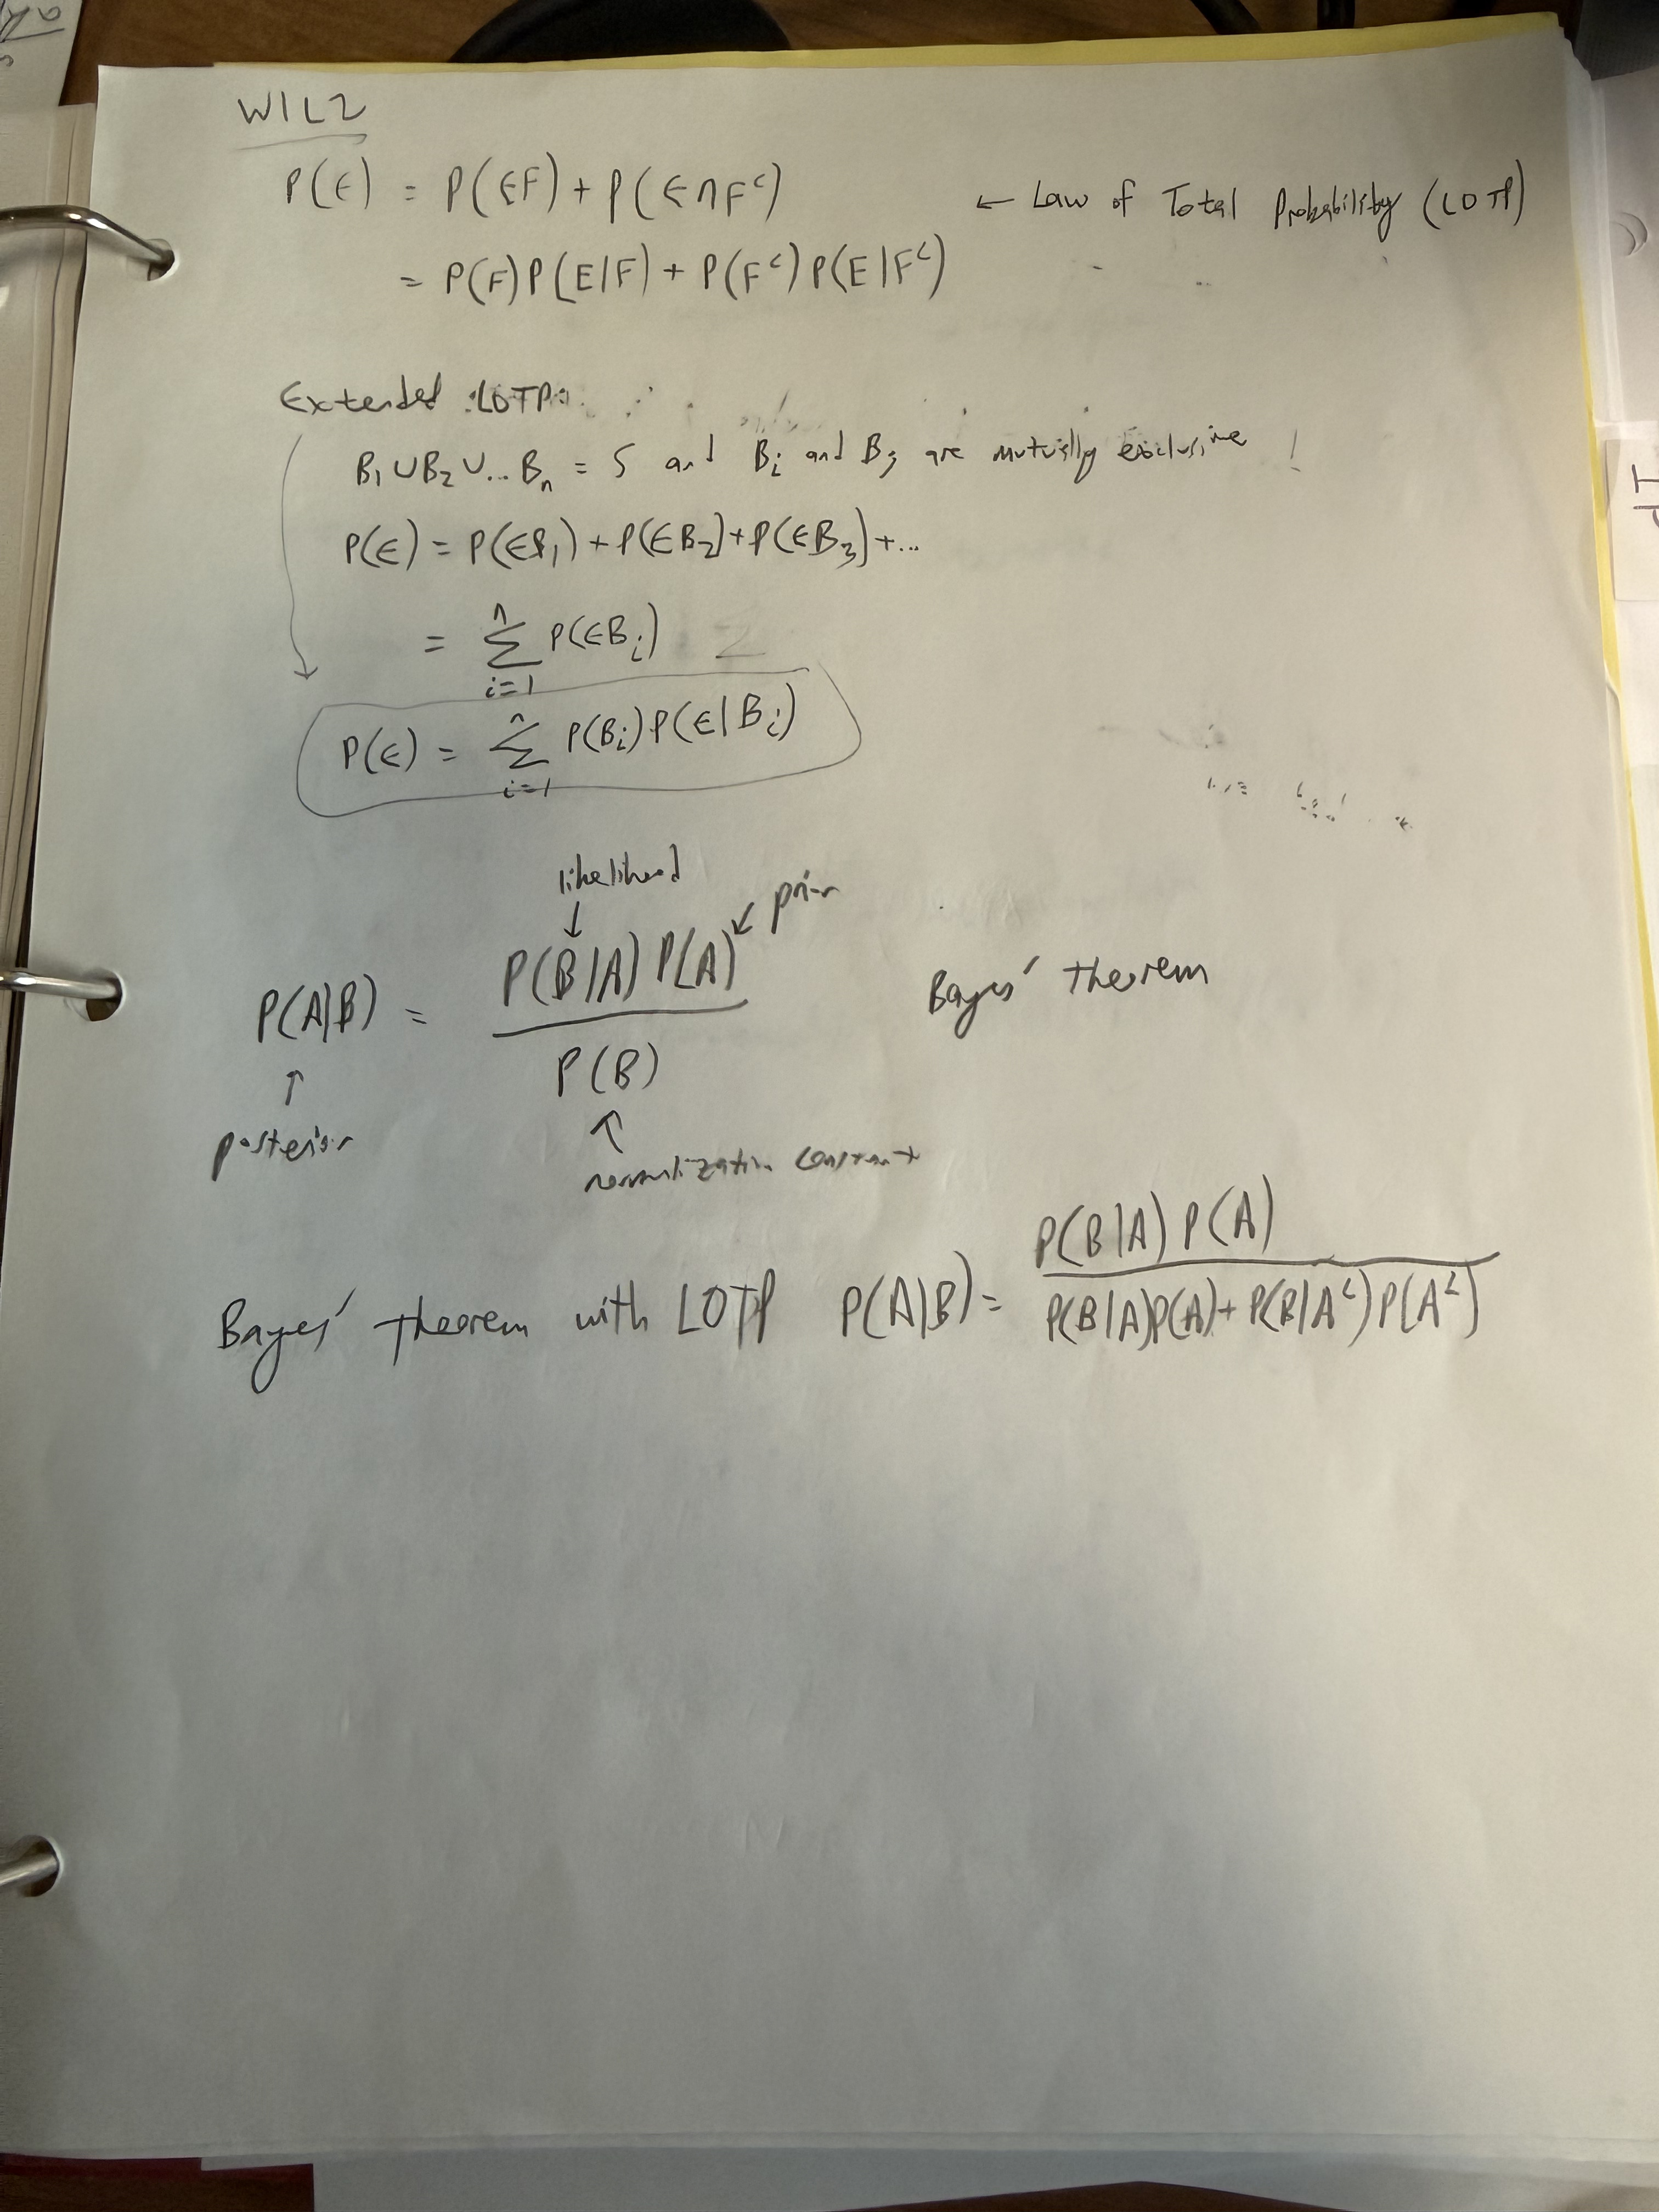 WIL2
P(E) = P(EF) + P(E∩Fᶜ) ← Law of Total Probability (LOTP)
= P(F)P(E|F) + P(Fᶜ)P(E|Fᶜ)
Extended LOTP:
B₁∪B₂∪...Bₙ = S and Bᵢ and Bⱼ are mutually exclusive !
P(E) = P(EB₁) + P(EB₂) + P(EB₃) + ...
n
= Σ P(EBᵢ)
i=1
n
P(E) = Σ P(Bᵢ)P(E|Bᵢ)
i=1
likelihood
↓ ↙ prior
P(B|A) P(A)
P(A|B) = Bayes' Theorem
P(B)
↑ ↑
posterior normalization constant
P(B|A) P(A)
Bayes' Theorem with LOTP P(A|B) =
P(B|A)P(A) + P(B|Aᶜ)P(Aᶜ)